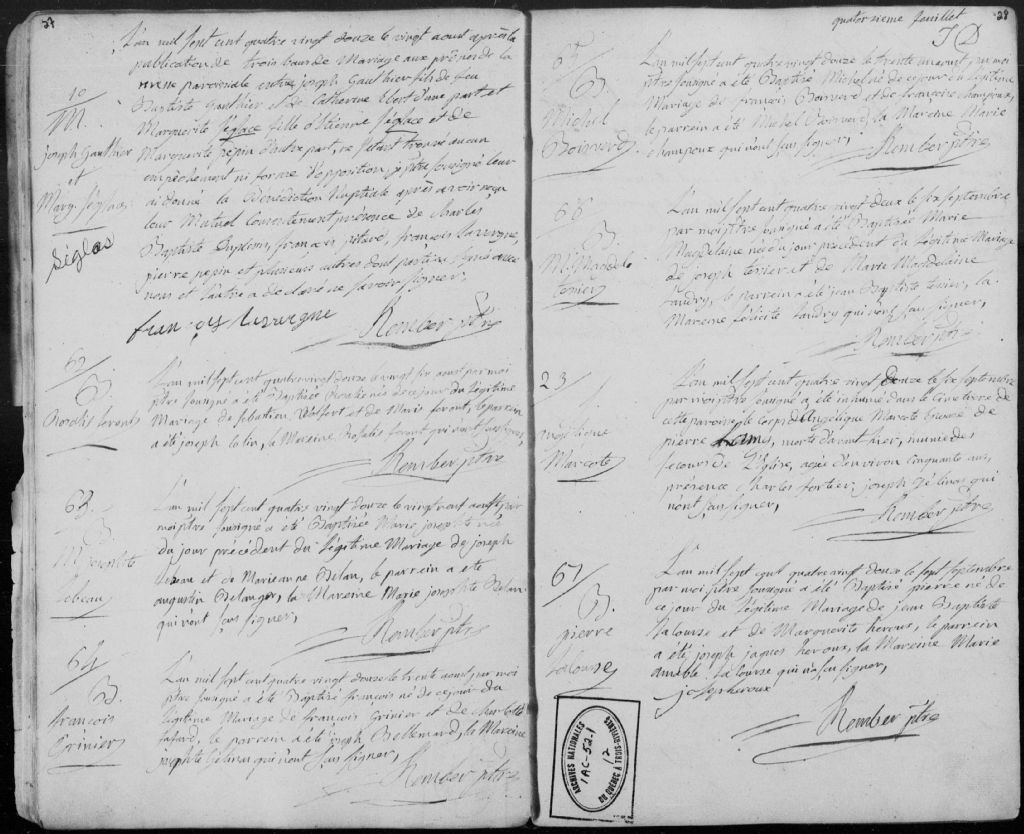 27
L'an mil sept cent quatre vingt douze le vingt aoust après la
publication de trois bans de Mariage aux prônes de la
messe paroissiale entre joseph Gauthier fils de feu
Baptiste Gauthier et de Catherine d'une part et
Marguerite Séglas fille d'Etienne Séglas et de
Marguerite pepin d'autre part, ne s'étant trouvé aucun
empêchement ni forme d'opposition, je ptre soussigné leur
ai donné la Bénédiction Nuptiale après avoir reçu
leur Mutuel Consentement présence de charles
Baptiste françois françois Lavergne,
pierre pepin et plusieurs autres dont partie signé avec
nous et l'autre a déclaré ne savoir signer,
françois lavergne Rember ptre
10
M.
joseph Gauthier
et
Marg. Séglas
Séglas
62
B.
Rosalie ferent
L'an mil sept cent quatre vingt douze le vingt six aout par moi
ptre soussigné a été Baptisée Rosalie née de ce jour du Légitime
Mariage de Sebastien et de Marie ferent, le parrein
a été joseph la Mareine Rosalie ferent qui n'ont sçu signer,
Rember ptre
63.
B.
M. josephte
Lebeau
L'an mil sept cent quatre vingt douze le vingt neuf aoust par
moi ptre soussigné a été Baptisée Marie josephte née
du jour précédent du Légitime Mariage de joseph
Lebeau et de Marieanne Belan, le parrein a été
augustin Belanger, la Mareine Marie josephte Belan
qui n'ont sçu signer,
Rember ptre
64
B.
francois
Grinier
L'an mil sept cent quatre vingt douze le trente aout par moi
ptre soussigné a été Baptisé françois né de ce jour du
Légitime Mariage de françois Grinier et de charlotte
fafard, le parrein a été joseph Bellemard, la Mareine
josephte Gelinas qui n'ont sçu signer,
Rember ptre
28
quatorzieme feuillet
J D
65
B.
Michel
Boisverd
L'an mil sept cent quatre vingt douze le trente un aout, par moi
ptre soussigné a été Baptisé Michel né de ce jour du Légitime
Mariage de françois Boisverd et de françoise champoux,
le parrein a été Michel Boisverd, la Mareine Marie
champoux qui n'ont sçu signer,
Rember ptre
66
B.
M. Magdele
tessier
L'an mil sept cent quatre vingt deux le six septembre
par moi ptre soussigné a été Baptisée Marie
Magdelaine née du jour précédent du Légitime Mariage
de joseph tessier et de Marie Magdelaine
Landry, le parrein a été jean Baptiste tessier, la
Mareine félicité Landry qui n'ont sçu signer,
Rember ptre
23
angélique
Marcote
L'an mil sept cent quatre vingt douze le six septembre
par moi ptre soussigné a été inhumé dans le Cimetiere de
cette paroisse le Corps d'Angélique Marcote Epouse de
pierre Lamy, morte d'avant hier, munie des
secours de L'Eglise, agée d'environ Cinquante ans,
présence charles fortier, joseph Gélinas qui
n'ont sçu signer,
Rember ptre
67
B.
pierre
Lalouse
L'an mil sept cent quatre vingt douze le sept septembre
par moi ptre soussigné a été Baptisé pierre né de
ce jour du Légitime Mariage de jean Baptiste
Lalouse et de Marguerite heroux, le parrein
a été joseph jaques heroux, la Mareine Marie
amable Lalouse qui n'a sçu signer,
joseph heroux
Rember ptre
ARCHIVES NATIONALES
1AC-52.1
12
DU QUÉBEC À TROIS-RIVIÈRES